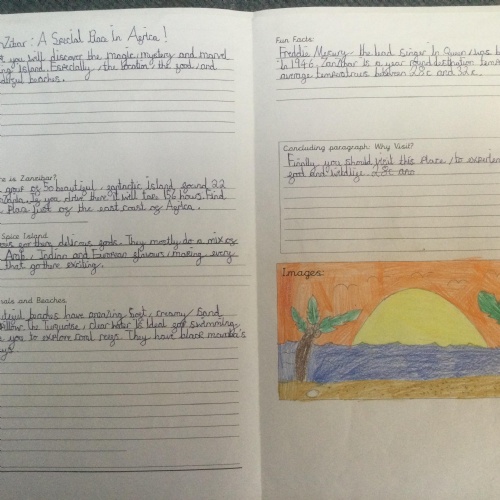 Zibar: A Special Place In Africa!
you will discover the magic, mystery and marvel
Island. Especially, the location, the food, and
beaches.
re is Zanzibar?
group of 50 beautiful, Island found 22
If you drive there it will take 156 hours. Find
Place just off the east coast of Africa.
Spice Island
for there delicious foods. They mostly do a mix of
Arab, Indian and European flavours, making every
that go there exciting.
als and Beaches
beaches have amazing soft, creamy Sand
the turquoise, clear water is ideal for swimming
you to explore coral reefs. They have black
Fun Facts:
Freddie Mercury the lead Singer In Queen was b
In 1946. Zanzibar is a year round destination
average temperatures between 28c and 32c.
Concluding paragraph: Why Visit?
Finally, you should visit this Place, to experien
food and wildlife. 28c and
Images: